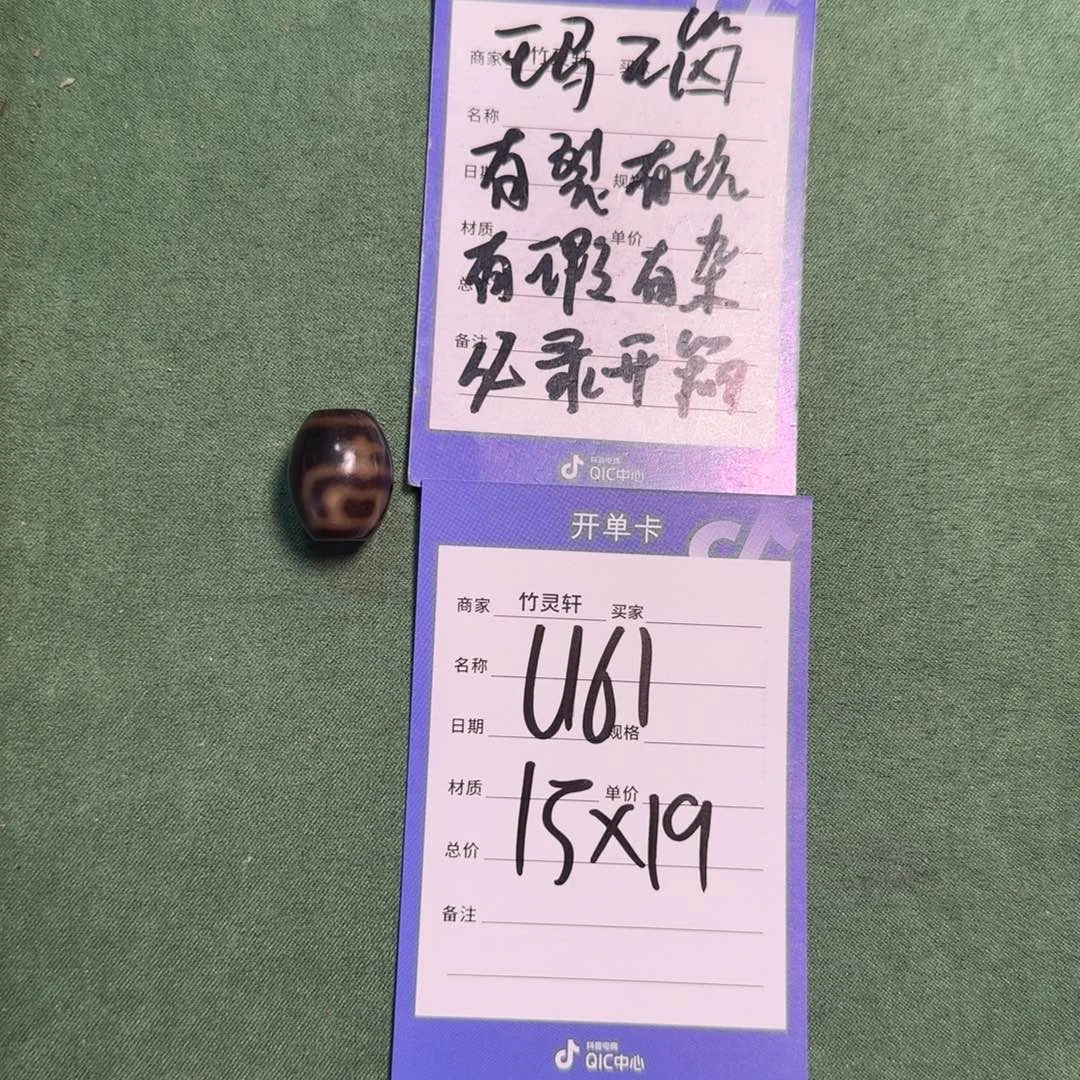 玛瑙石卤
商家 竹灵轩 买
名称
有裂有坑
日期 规格
材质 单价
有瑕有杂
总
备注
必录开箱
抖音电商
QIC中心
开单卡
商家 竹灵轩 买家
名称
U61
日期 规格
材质 单价
15X19
总价
备注
抖音电商
QIC中心